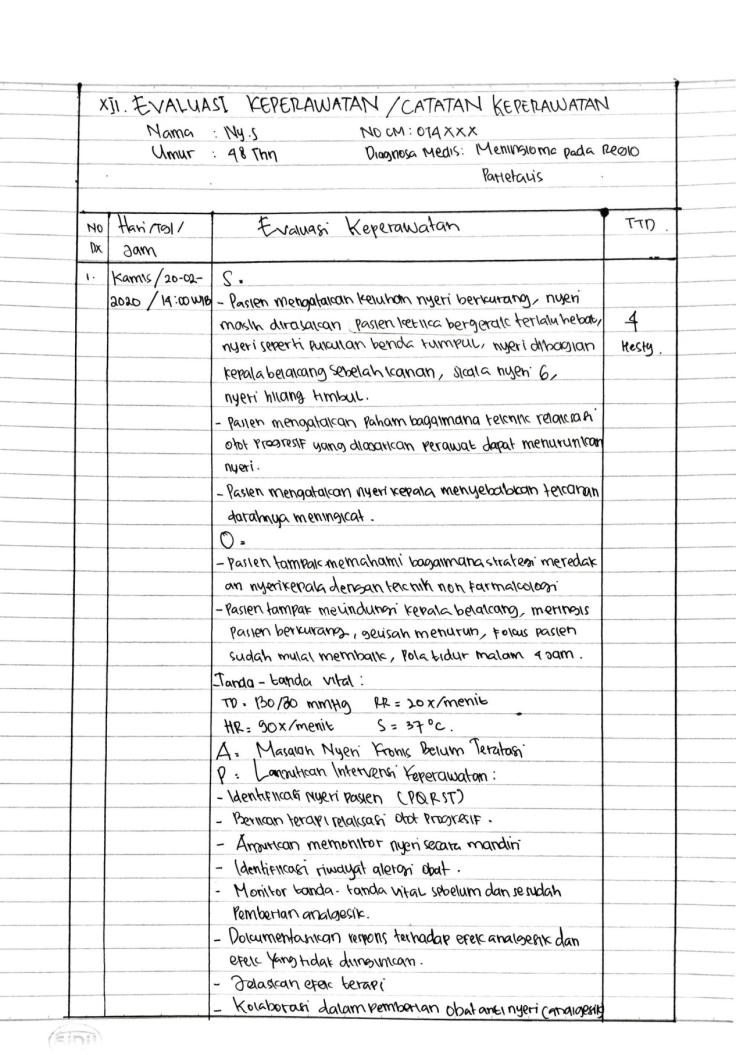 XII. EVALUASI KEPERAWATAN / CATATAN KEPERAWATAN
Nama : Ny. S NO CM : 014XXX
Umur : 48 Thn Diagnosa Medis: Meningioma pada Regio
Parietalis
NO DX Hari/Tgl/ Jam Evaluasi Keperawatan TTD
1. Kamis/20-02-2020 /14:00 WIB
S =
- Pasien mengatakan keluhan nyeri berkurang, nyeri
masih dirasakan pasien ketika bergerak terlalu hebat,
nyeri seperti pukulan benda tumpul, nyeri dibagian
kepala belakang sebelah kanan, skala nyeri 6,
nyeri hilang timbul.
Hesty.
- Pasien mengatakan paham bagaimana teknik relaksasi
otot progresif yang diajarkan perawat dapat menurunkan
nyeri.
- Pasien mengatakan nyeri kepala menyebabkan tekanan
darahnya meningkat.
O =
- Pasien tampak memahami bagaimana strategi meredak
an nyeri kepala dengan teknik non farmakologi
- Pasien tampak melindungi kepala belakang, meringis
pasien berkurang, gelisah menurun, fokus pasien
sudah mulai membaik, pola tidur malam 4 jam.
Tanda-tanda vital :
TD = 130/80 mmHg RR = 20x/menit
HR = 90x/menit S = 37°C.
A = Masalah Nyeri Kronis Belum Teratasi
P = Lanjutkan Intervensi Keperawatan :
- Identifikasi nyeri pasien (PQRST)
- Berikan terapi relaksasi otot progresif.
- Anjurkan memonitor nyeri secara mandiri
- Identifikasi riwayat alergi obat.
- Monitor tanda-tanda vital sebelum dan sesudah
pemberian analgesik.
- Dokumentasikan respons terhadap efek analgesik dan
efek yang tidak diinginkan.
- Jelaskan efek terapi
- Kolaborasi dalam pemberian obat anti nyeri (analgesik)